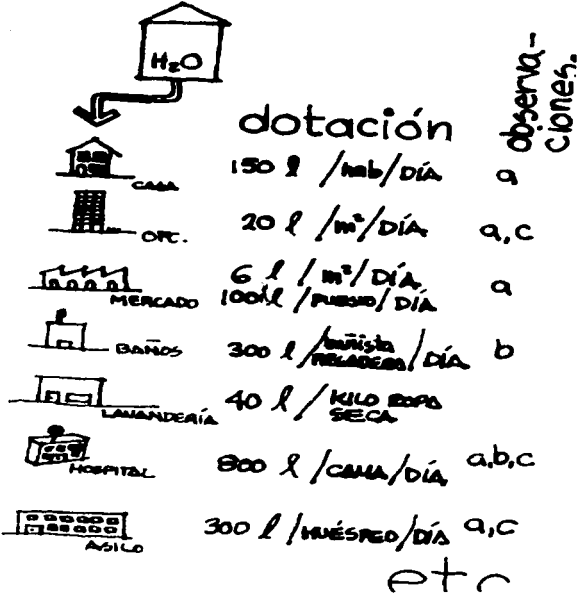 H₂O
dotación
observa-
ciones.
CASA 150 l /hab/DÍA a
OFC. 20 l /m²/DÍA a,c
6 l /m²/DÍA a
MERCADO 100 l /PUESTO/DÍA
BAÑOS 300 l /bañista REGADERA/DÍA b
LAVANDERÍA 40 l /KILO ROPA
SECA
HOSPITAL 800 l /CAMA/DÍA a,b,c
ASILO 300 l /HUÉSPED/DÍA a,c
etc